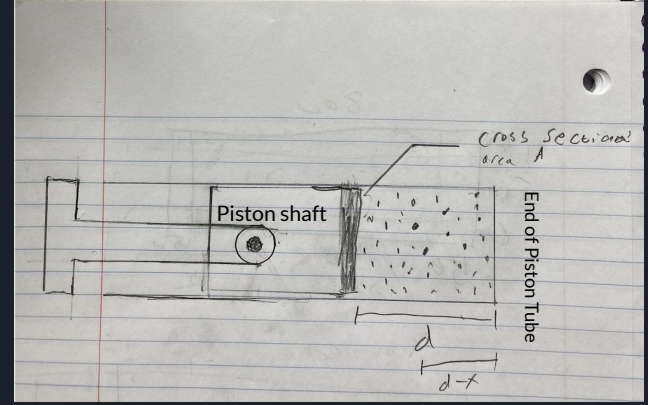 cross sectional
area A
Piston shaft
End of Piston Tube
d
d-x